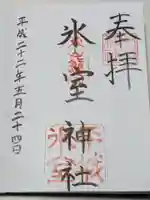 奉拝
氷室神社
平成二十二年五月二十四日